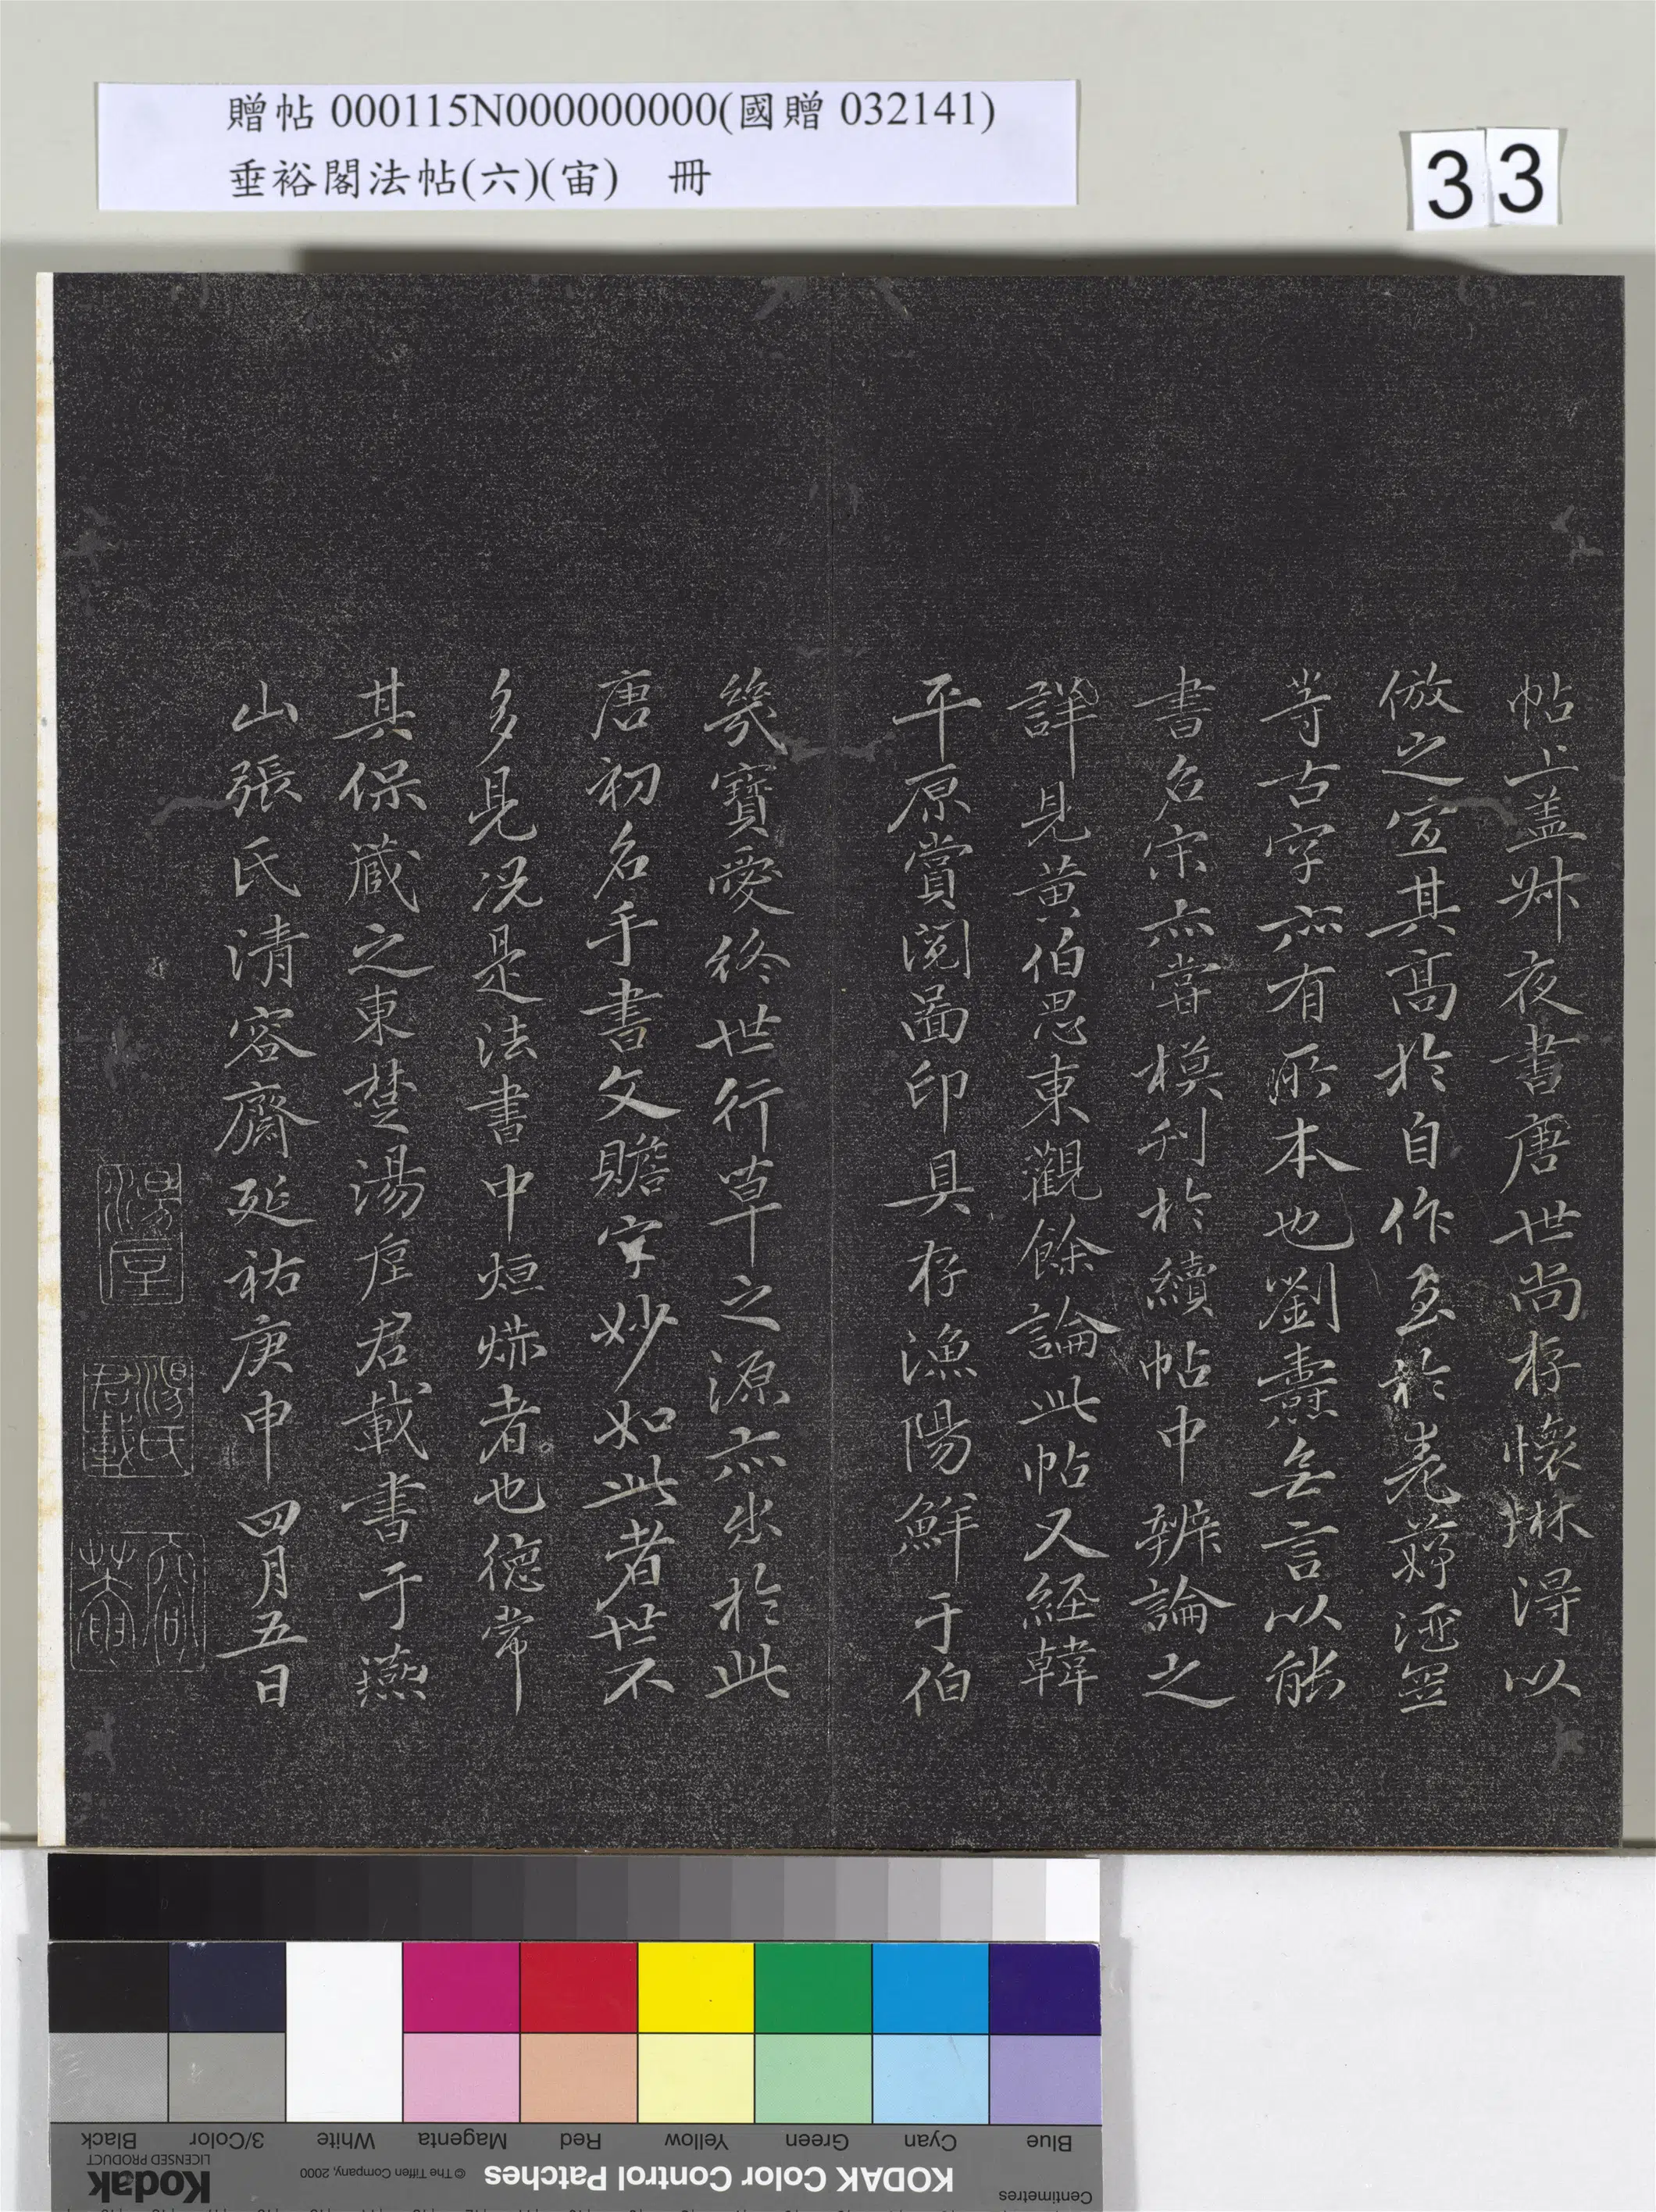 贈帖 000115N000000000(國贈 032141)
垂裕閣法帖(六)(宙) 冊
33
帖上盖叔夜書唐世尚存懷琳得以
倣之宜其高於自作至於老
等古字亦有所本也劉燾無言以能
書名宋亦嘗模刊於續帖中辨論之
詳見黄伯思東觀餘論此帖又經韓
平原賞閱啚印具存漁陽鮮于伯
幾寶愛終世行草之源亦出於此
唐初名手書文贍字妙如此者世不
多見况是法書中烜爀者也德常
其保藏之東楚湯垕君載書于燕
山張氏清容齋延祐庚申四月五日
湯垕
湯氏君載
KODAK Color Control Patches
© The Tiffen Company, 2000
Kodak
LICENSED PRODUCT
Centimetres
Blue Cyan Green Yellow Red Magenta White 3/Color Black